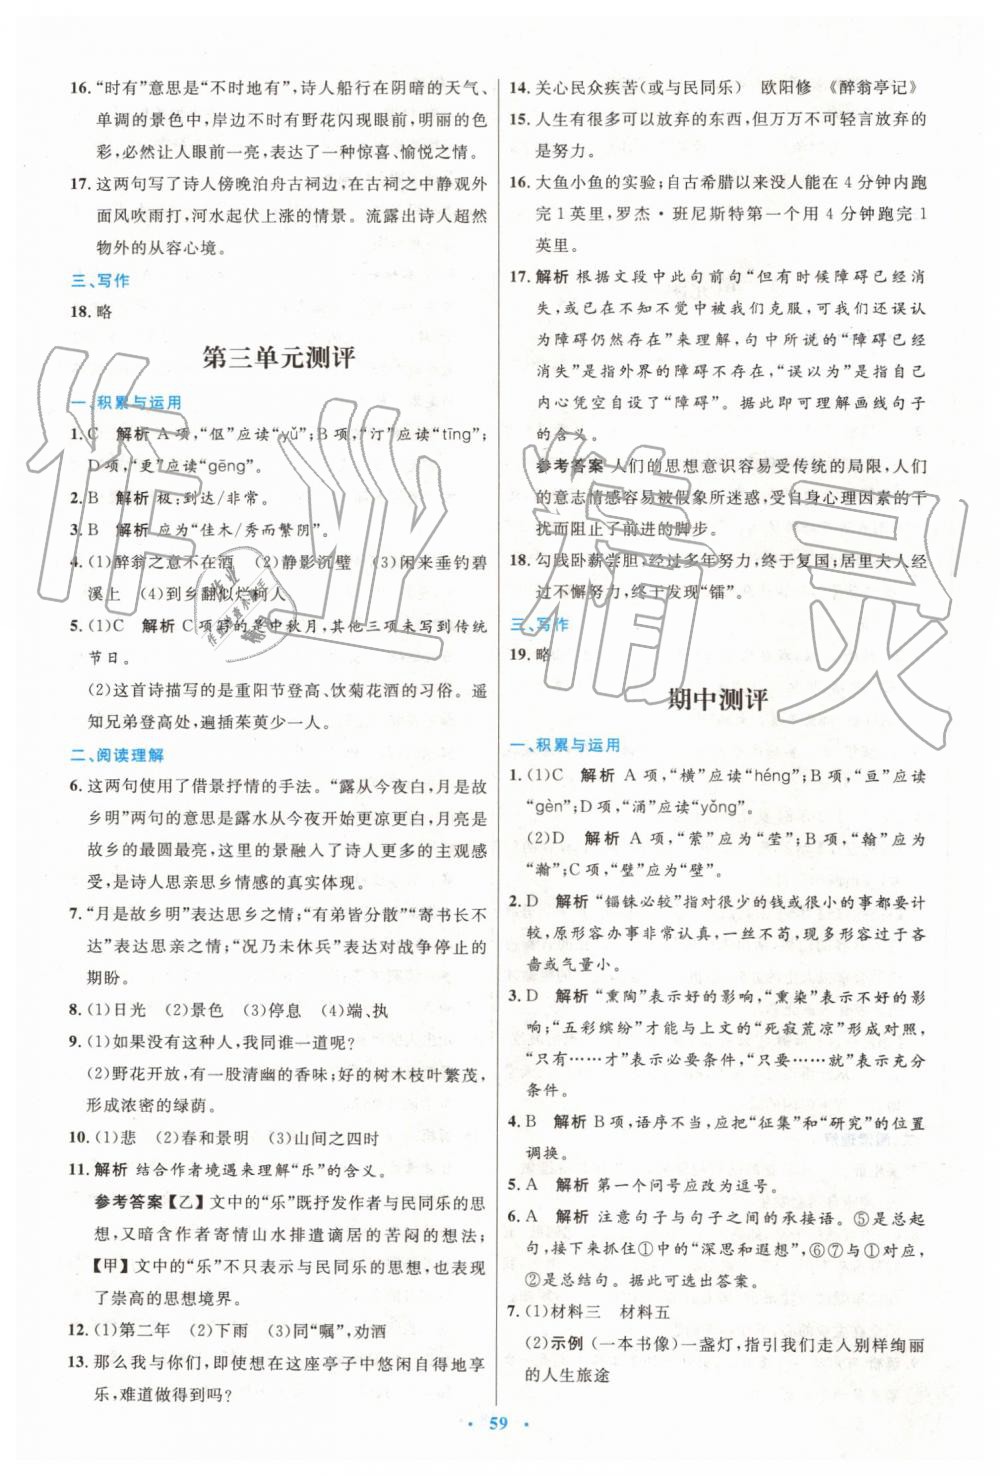 16.“时有”意思是“不时地有”,诗人船行在阴暗的天气、
单调的景色中,岸边不时有野花闪现眼前,明丽的色
彩,必然让人眼前一亮,表达了一种惊喜、愉悦之情。
17.这两句写了诗人傍晚泊舟古祠边,在古祠之中静观外
面风吹雨打,河水起伏上涨的情景。流露出诗人超然
物外的从容心境。
三、写作
18.略
第三单元测评
一、积累与运用
1.C 解析 A项,“伛”应读“yǔ”;B项,“汀”应读“tīng”;
D项,“更”应读“gēng”。
2.B 解析 极:到达/非常。
3.B 解析 应为“佳木/秀而繁阴”。
4.(1)醉翁之意不在酒 (2)静影沉璧 (3)闲来垂钓碧
溪上 (4)到乡翻似烂柯人
5.(1)C 解析 C项写的是中秋月,其他三项未写到传统
节日。
(2)这首诗描写的是重阳节登高、饮菊花酒的习俗。遥
知兄弟登高处,遍插茱萸少一人。
二、阅读理解
6.这两句使用了借景抒情的手法。“露从今夜白,月是故
乡明”两句的意思是露水从今夜开始更凉更白,月亮是
故乡的最圆最亮,这里的景融入了诗人更多的主观感
受,是诗人思亲思乡情感的真实体现。
7.“月是故乡明”表达思乡之情;“有弟皆分散”“寄书长不
达”表达思亲之情;“况乃未休兵”表达对战争停止的
期盼。
8.(1)日光 (2)景色 (3)停息 (4)端、执
9.(1)如果没有这种人,我同谁一道呢?
(2)野花开放,有一股清幽的香味;好的树木枝叶繁茂,
形成浓密的绿荫。
10.(1)悲 (2)春和景明 (3)山间之四时
11.解析 结合作者境遇来理解“乐”的含义。
参考答案【乙】文中的“乐”既抒发作者与民同乐的思
想,又暗含作者寄情山水排遣谪居的苦闷的想法;
【甲】文中的“乐”不只表示与民同乐的思想,也表现
了崇高的思想境界。
12.(1)第二年 (2)下雨 (3)同“嘱”,劝酒
13.那么我与你们,即使想在这座亭子中悠闲自得地享
乐,难道做得到吗?
14.关心民众疾苦(或与民同乐) 欧阳修 《醉翁亭记》
15.人生有很多可以放弃的东西,但万万不可轻言放弃的
是努力。
16.大鱼小鱼的实验;自古希腊以来没人能在4分钟内跑
完1英里,罗杰·班尼斯特第一个用4分钟跑完1
英里。
17.解析 根据文段中此句前句“但有时候障碍已经消
失,或已在不知不觉中被我们克服,可我们还误认
为障碍仍然存在”来理解,句中所说的“障碍已经
消失”是指外界的障碍不存在,“误以为”是指自己
内心凭空自设了“障碍”。据此即可理解画线句子
的含义。
参考答案 人们的思想意识容易受传统的局限,人们
的意志情感容易被假象所迷惑,受自身心理因素的干
扰而阻止了前进的脚步。
18.勾践卧薪尝胆,经过多年努力,终于复国;居里夫人经
过不懈努力,终于发现“镭”。
三、写作
19.略
期中测评
一、积累与运用
1.(1)C 解析 A项,“横”应读“héng”;B项,“亘”应读
“gèn”;D项,“涌”应读“yǒng”。
(2)D 解析 A项,“萦”应为“莹”;B项,“翰”应为
“瀚”;C项,“壁”应为“璧”。
2.D 解析 “锱铢必较”指对很少的钱或很小的事都要计
较,原形容办事非常认真,一丝不苟,现多形容过于吝
啬或气量小。
3.D 解析 “熏陶”表示好的影响,“熏染”表示不好的影
响;“五彩缤纷”才能与上文的“死寂荒凉”形成对照,
“只有……才”表示必要条件,“只要……就”表示充分
条件。
4.B 解析 B项,语序不当,应把“征集”和“研究”的位置
调换。
5.A 解析 第一个问号应改为逗号。
6.A 解析 注意句子与句子之间的承接语。⑤是总起
句,接下来抓住①中的“深思和遐想”,⑥⑦与①对应,
②是总结句。据此可选出答案。
7.(1)材料三 材料五
(2)示例 (一本书像)一盏灯,指引我们走入别样绚丽
的人生旅途
59
作业精灵